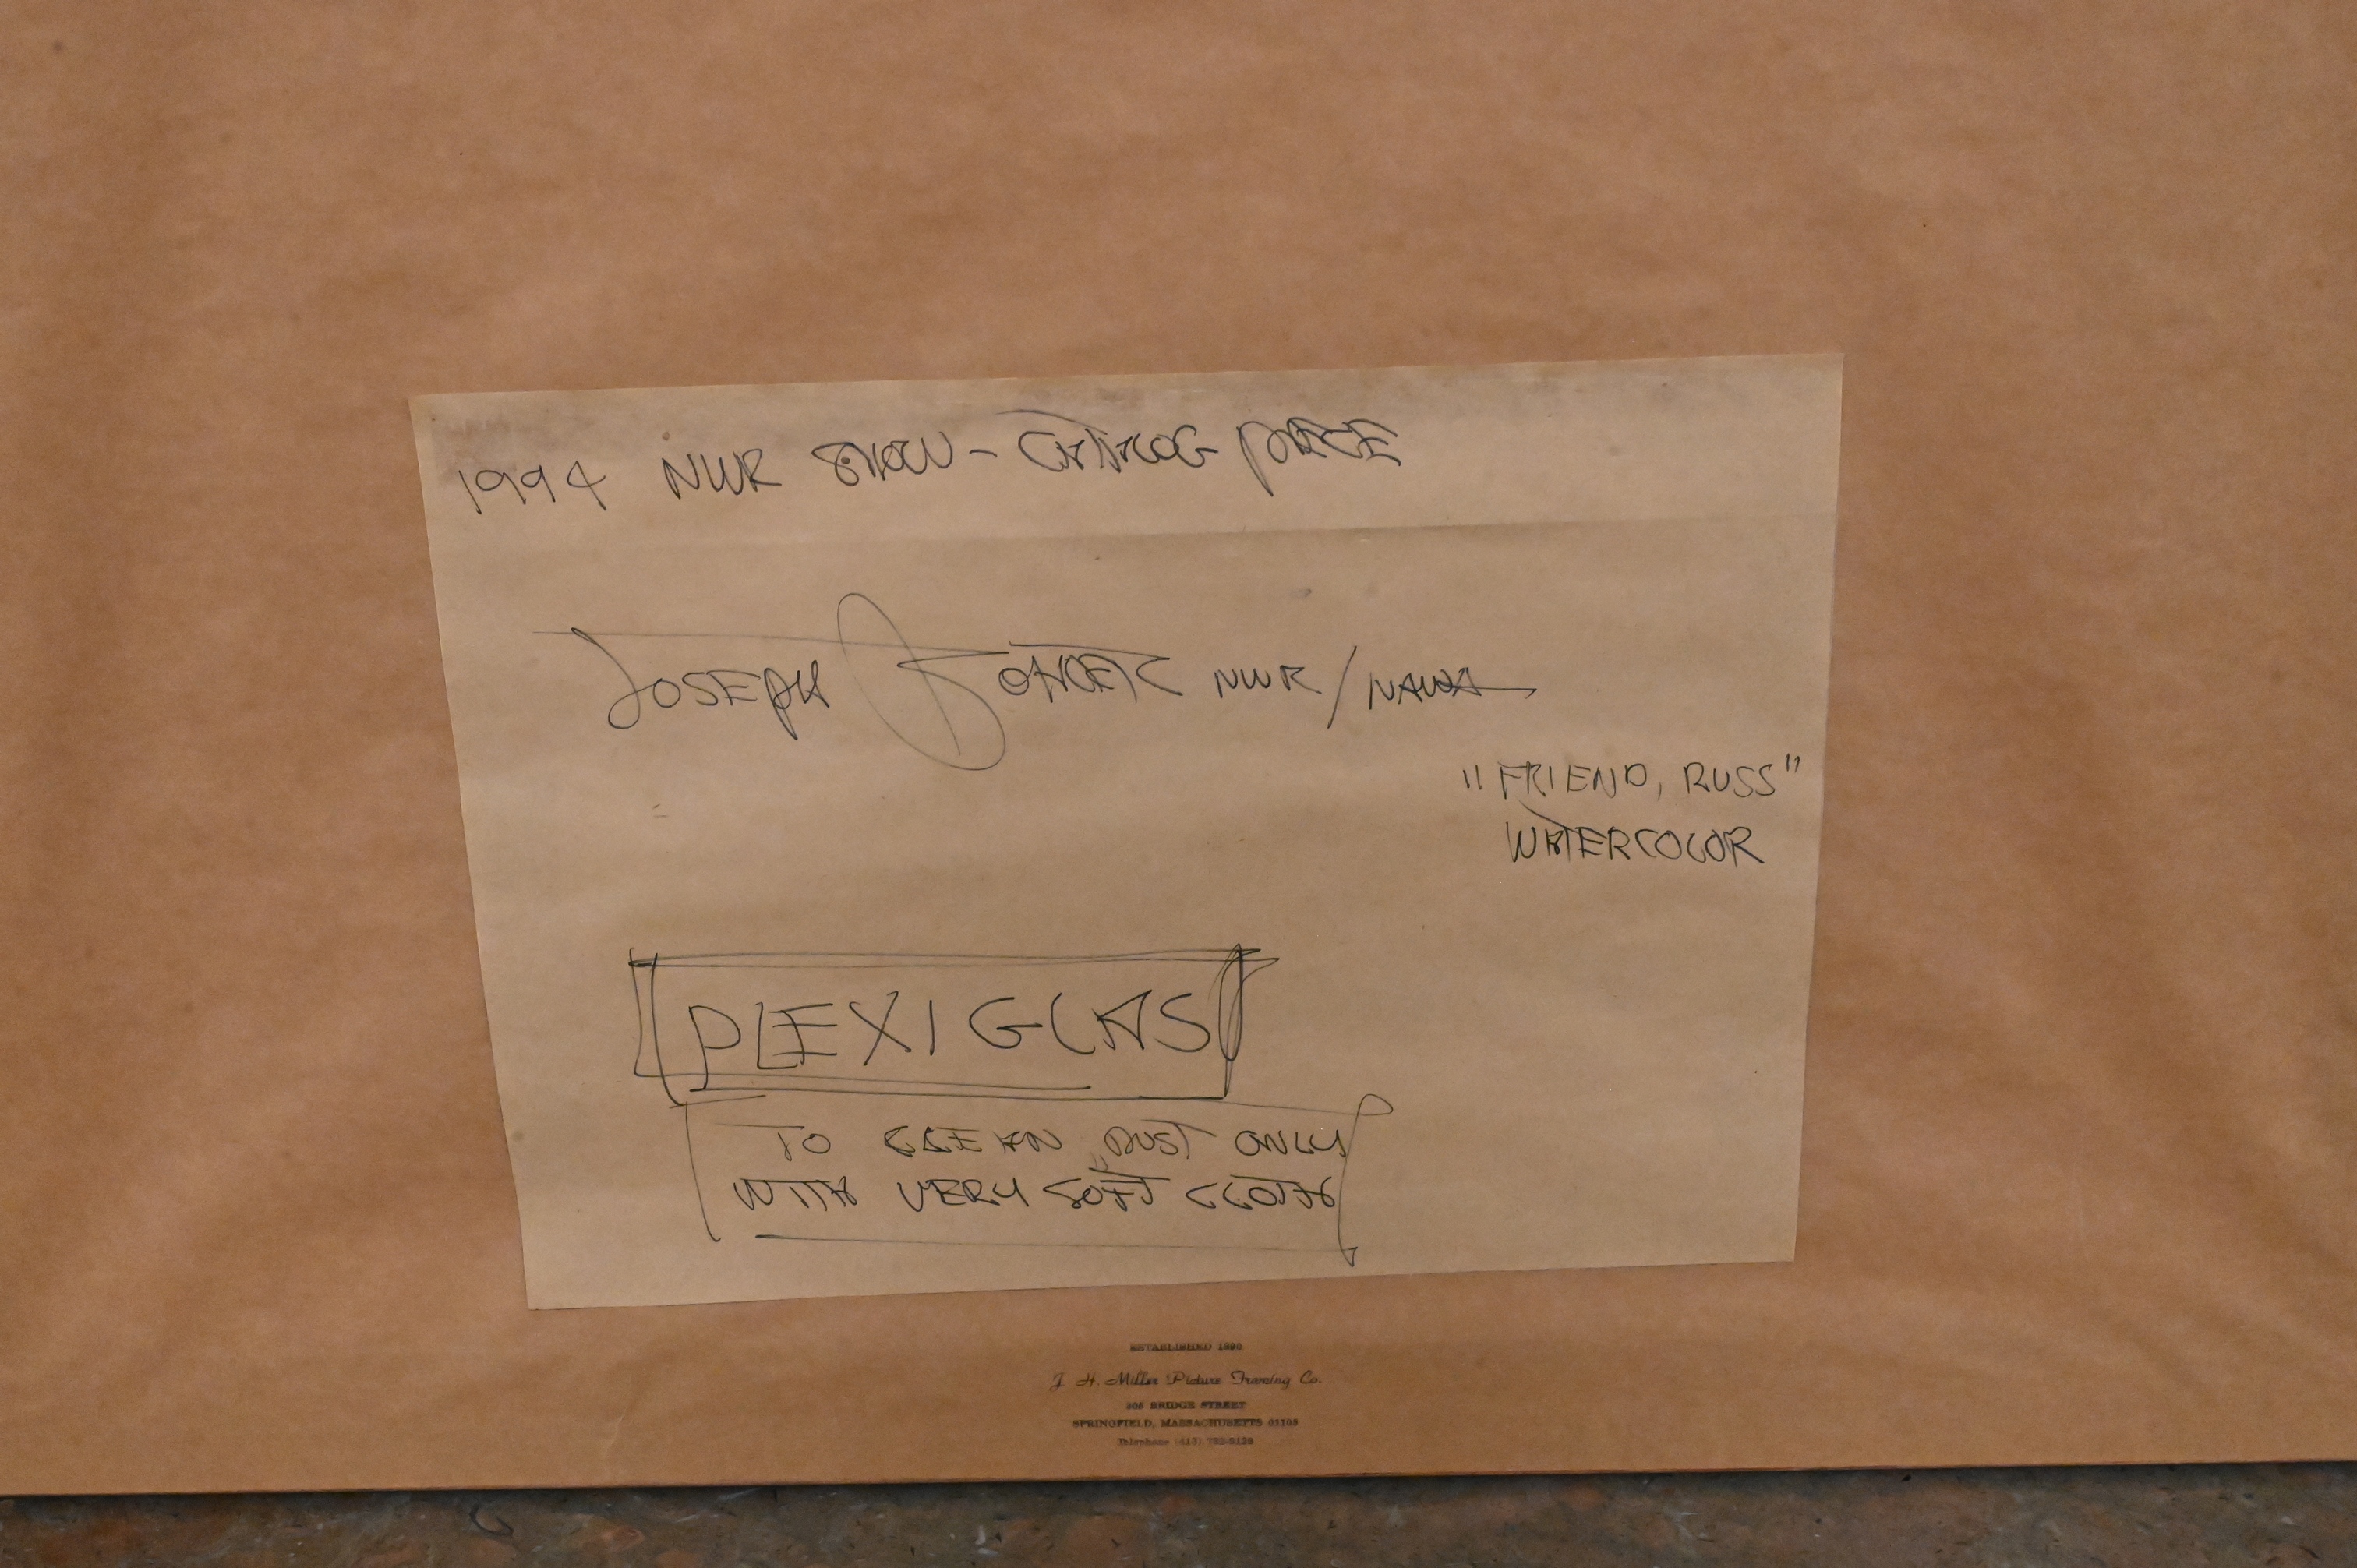 1994 NWR SHOW - CATALOG
JOSEPH BOHLER NWR/NAWA
"FRIEND, RUSS"
WATERCOLOR
PLEXIGLAS
TO CLEAN DUST ONLY
WITH VERY SOFT CLOTH
ESTABLISHED 1890
J. H. Miller Picture Framing Co.
BRIDGE STREET
SPRINGFIELD, MASSACHUSETTS 01103
Telephone (413)